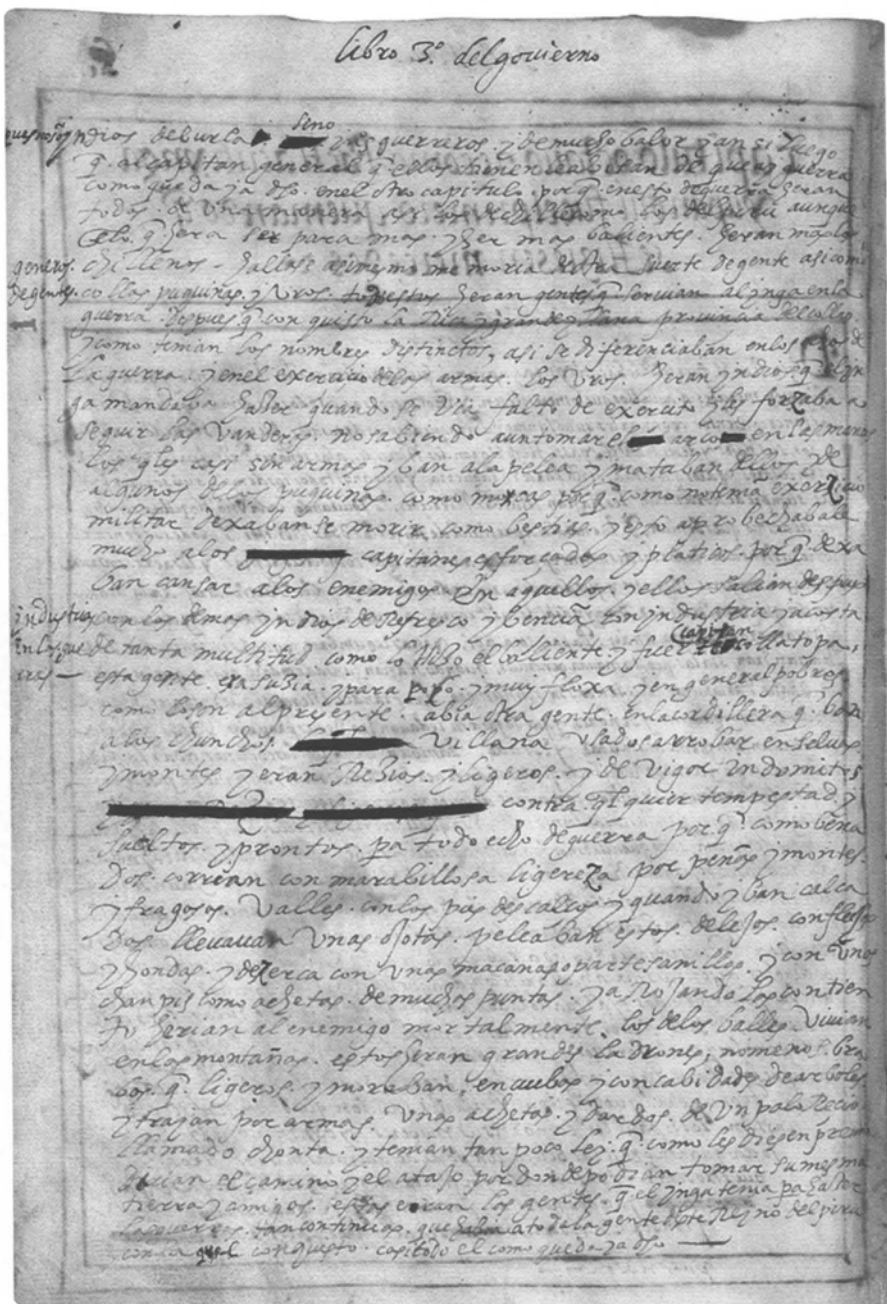 libro 3.º del govierno
que no son yndios de burla sino mas guerreros. y de mucho balor y an si luego
q. al capitan general q. ellos tenian
como queda ya dho. en el otro capitulo. por q. en esto de guerra heran
todos de una manera asi los de chile como los del piru aunque
lo q. hera ser para mas y ser mas balientes. heran mas los
generos de gentes
chillenos. hallase asi mismo memoria de otra suerte de gente asi como
collas puquinas. y Uros. todos estos heran gentes q. servian al ynga en la
guerra. despues q. con quisto la rica y grande y llana provincia del collao.
y como tenian los nombres distinctos, asi se diferenciaban en los de
la guerra. y en el exercicio de las armas. los Uros. heran yndios q. el yn
ga mandava hazer quando se via falto de exercito y les forzaba a
seguir las vanderas. no sabiendo aun tomar el arco en las manos
los qles casi sin armas yban a la pelea y mataban dellos y de
algunos de los puquinas. como moscas por q. como no tenian exerzicio
militar dexaban se morir como bestias. y esto aprobechaba
mucho a los capitanes esforcados y platicos. por q. dexa
ban cansar a los enemigos en aquellos. y ellos salian despues
yndustrias en las guerras
con los demas yndios de Refresco y bencian con yndustria y a costa
de tanta multitud como lo hizo el balliente y fuerte capitan collatopa,
esta gente era suzia. y para poco. y muy floxa. y en general pobres
como lo son al presente. abia otra gente. en la cordillera q. ban
a los chunchos. villana usados a rrobar en selvas
y montes y eran Rezios. y ligeros. y de vigor indomitos
contra qlquier tempestad y
sueltos. y prontos. pa todo echo de guerra por q. como bena
dos. corrian con marabillosa ligereza por peñas y montes.
y fragosos. valles. con los pies descalcos y quando yban calca
dos. llevavan unas ojotas. peleaban estos. de lejos. con flechas
y hondas. y de zerca con unas macanas o partesanillas. y con unos
chanpis como achetas. de muchas puntas. y aRojando los con tien
to herian al enemigo mortalmente. los de los balles. vivian
en las montañas. estos heran grandes ladrones, no menos. bra
bos. q. ligeros. y moraban, en cubos y concabidades de arboles
y trajan por armas. unas achetas. y dardos. de un palo Recio
llamado chonta. y tenian tan poca ley. q. como les diesen premio
decian el camino y el atajo por donde podian tomar su mesma
tierra y amigos. estas eran las gentes. q. el ynga tenia pa hazer
las guerras. tan continuas. que hizo a toda la gente deste Reyno del piru
con la qual conquisto. casi todo el como queda ya dho